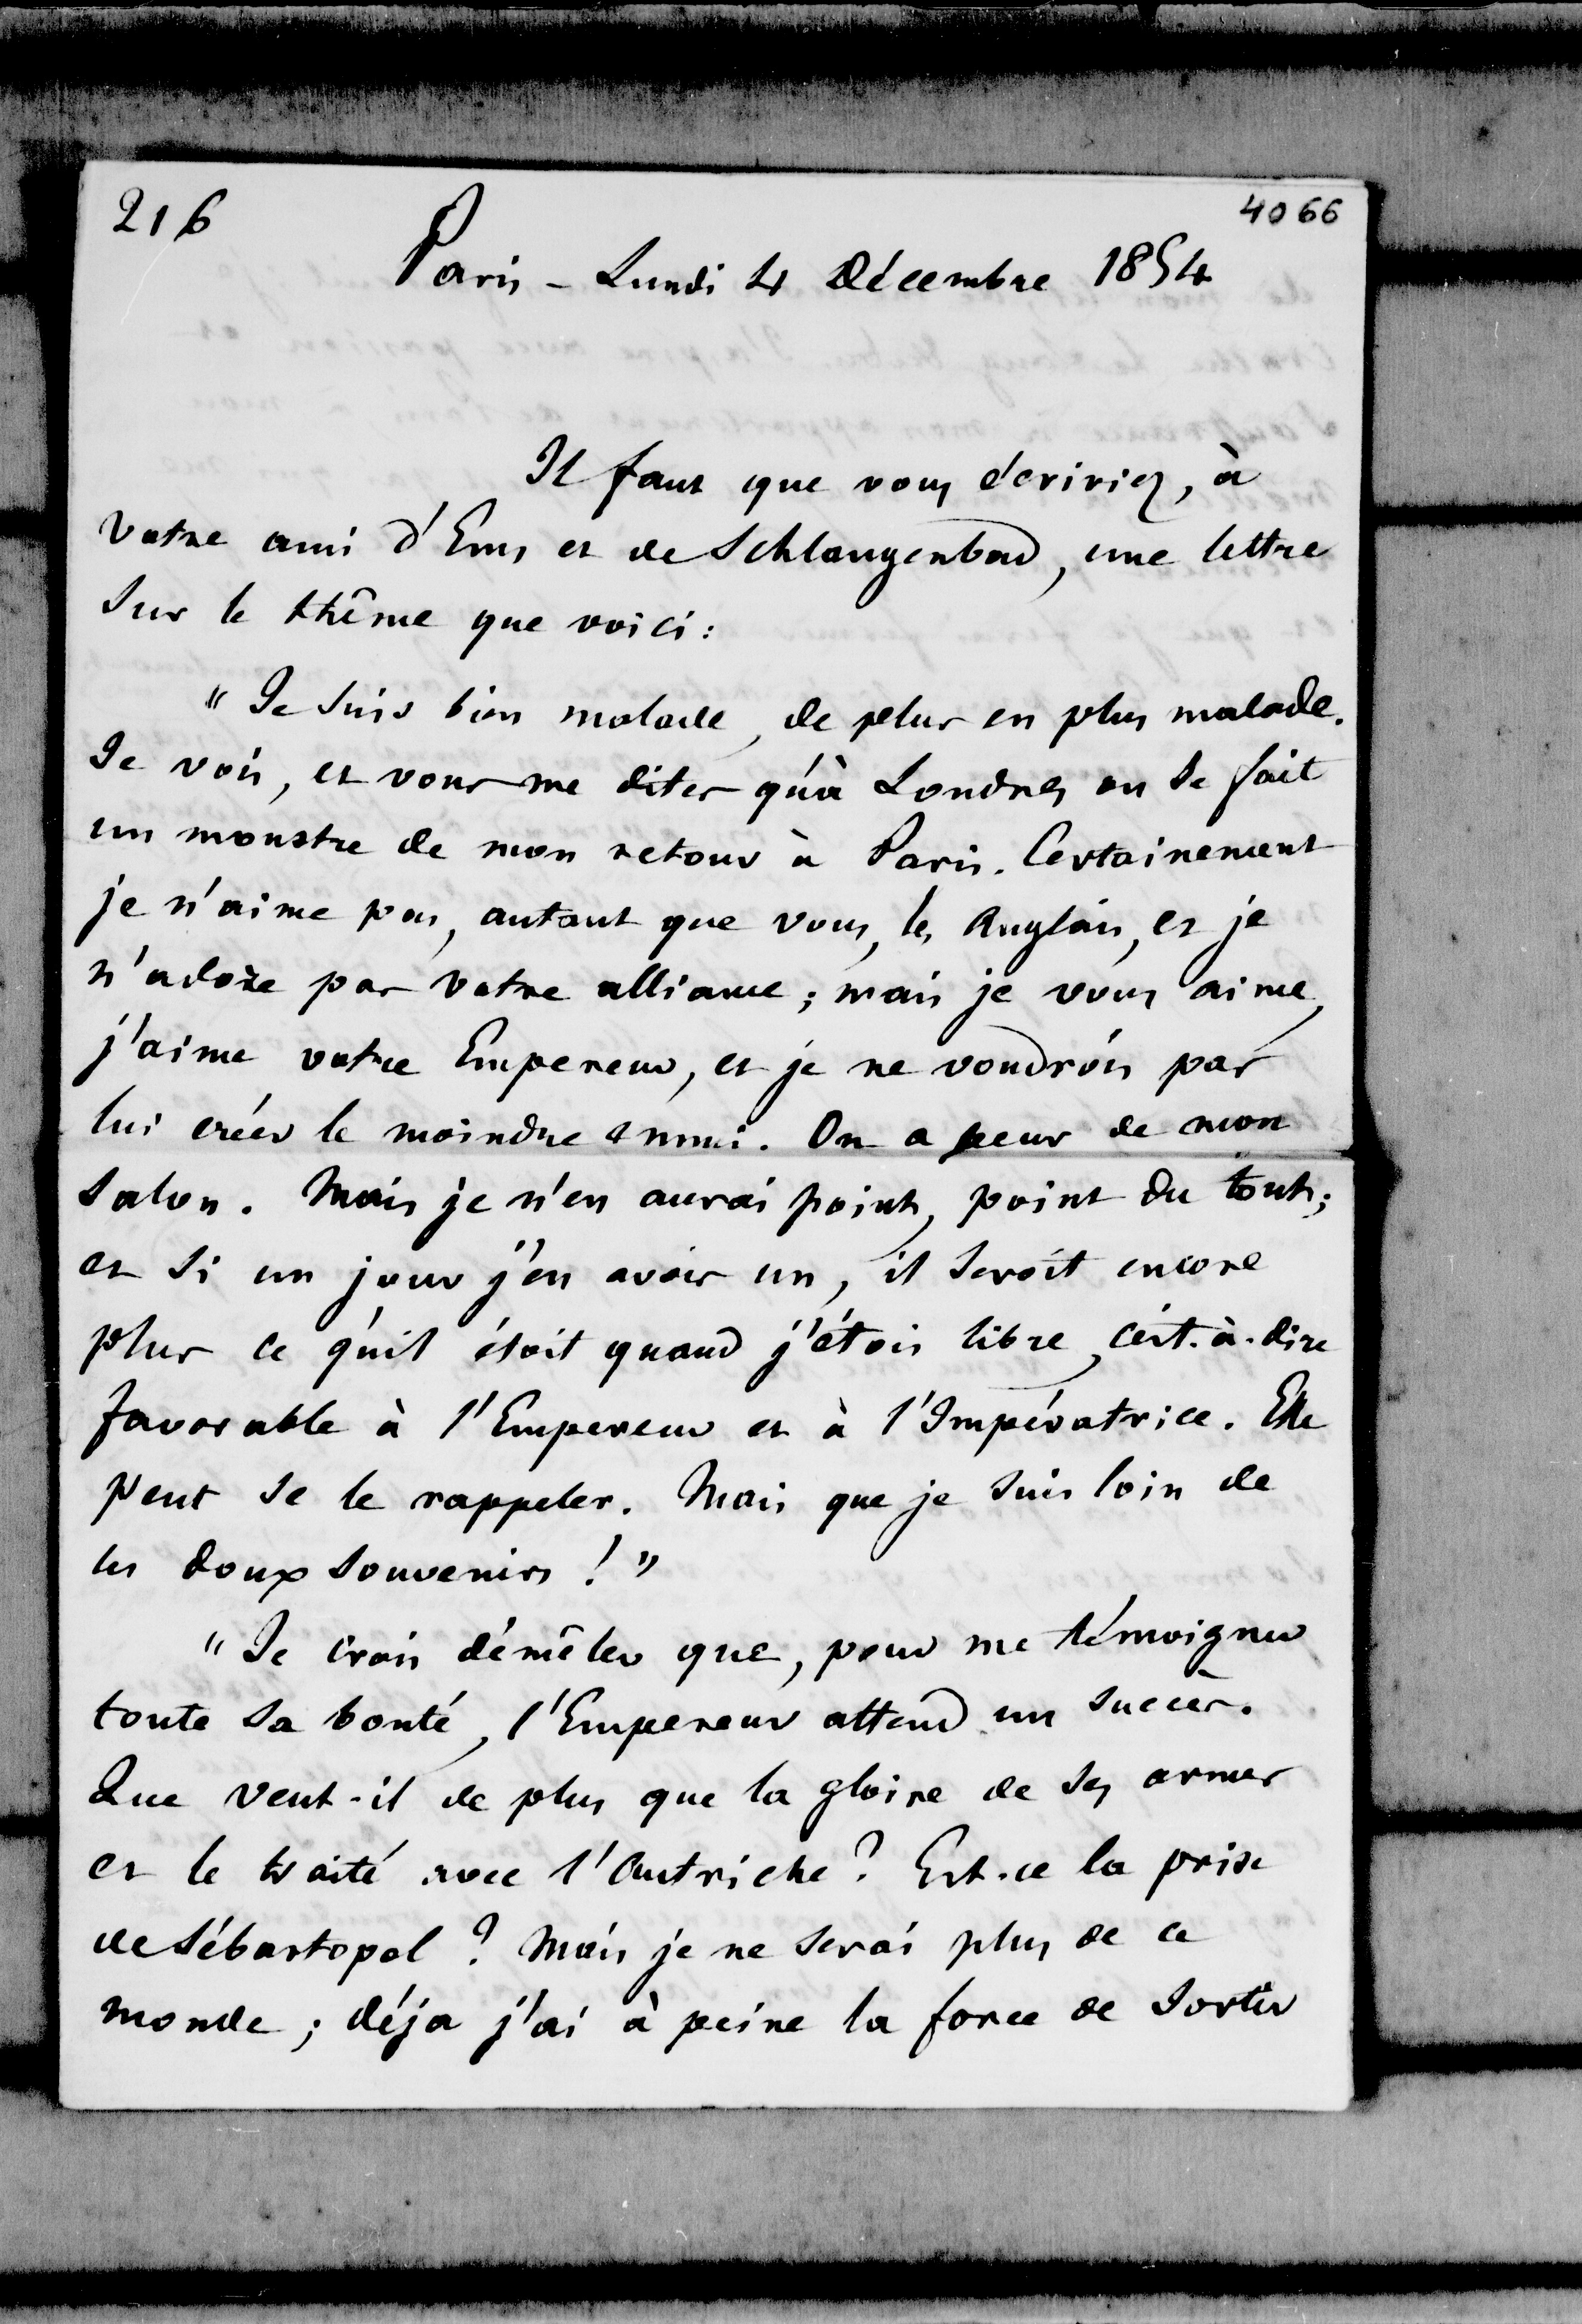 216
4066
Paris - Lundi 4 Décembre 1854
Il faut que vous écriviez, à
votre ami d'Ems et de Schlangenbad, une lettre
sur le thême que voici :
"Je suis bien malade, de plus en plus malade.
Je vois, et vous me dites qu'à Londres on se fait
un monstre de mon retour à Paris. Certainement
je n'aime pas, autant que vous, les Anglais, et je
n'adore pas votre alliance ; mais je vous aime,
j'aime votre Empereur, et je ne voudrois pas
lui créer le moindre ennui. On a peur de mon
salon. Mais je n'en aurai point, point du tout ;
et si un jour j'en avois un, il seroit encore
plus ce qu'il étoit quand j'étois libre, c'est-à-dire
favorable à l'Empereur et à l'Impératrice. Elle
peut se le rappeler. Mais que je suis loin de
ces doux souvenirs !"
"Je crois démêler que, pour me témoigner
toute sa bonté, l'Empereur attend un succès.
Que veut-il de plus que la gloire de ses armes
et le traité avec l'Autriche ? Est-ce la prise
de Sébastopol ? Mais je ne serai plus de ce
monde ; déja j'ai à peine la force de sortir